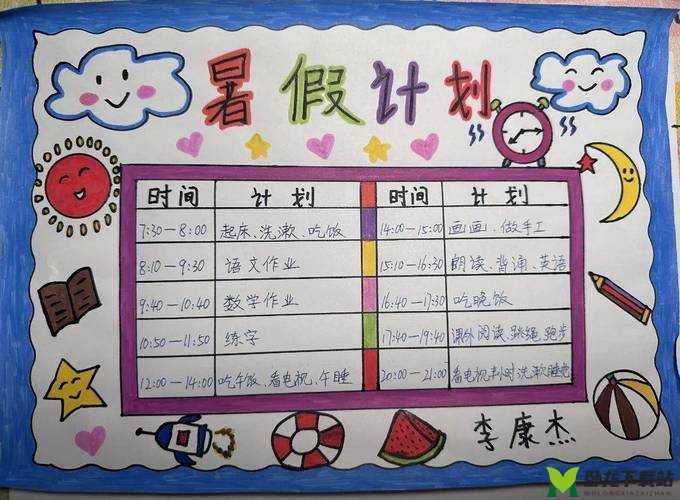 暑假计划
时间 计划 时间 计划
7:30—8:00 起床、洗漱、吃饭 14:00—15:00 画画、做手工
8:10—9:30 语文作业 15:10—16:30 朗读、背诵、英语
9:40—10:40 数学作业 16:40—17:30 吃晚饭
10:50—11:50 练字 17:40—19:40 课外阅读、跳绳、跑步
12:00—14:00 吃午饭、看电视、午睡 20:00—21:00 看电视半小时洗漱睡觉
李康杰
卧龙下载站
WOLONGXIAZAIZHAN